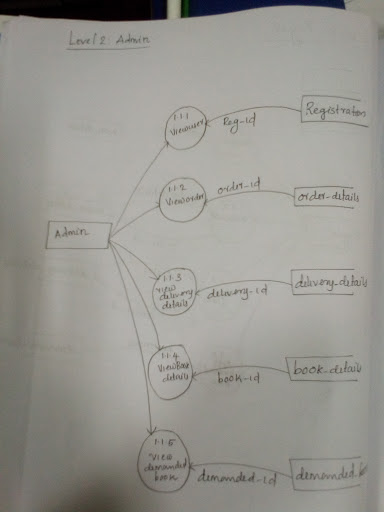 Level 2: Admin
1.1.1
Viewuser
Reg-id
Registration
1.1.2
Vieworder
order-id
order-details
Admin
1.1.3
view
delivery
details
delivery-id
delivery-details
1.1.4
View Book
details
book-id
book-details
1.1.5
View
demanded
book
demanded-id
demanded-